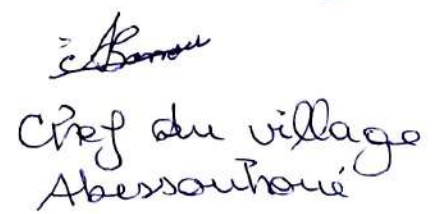 Chef du village
Abessouhoué